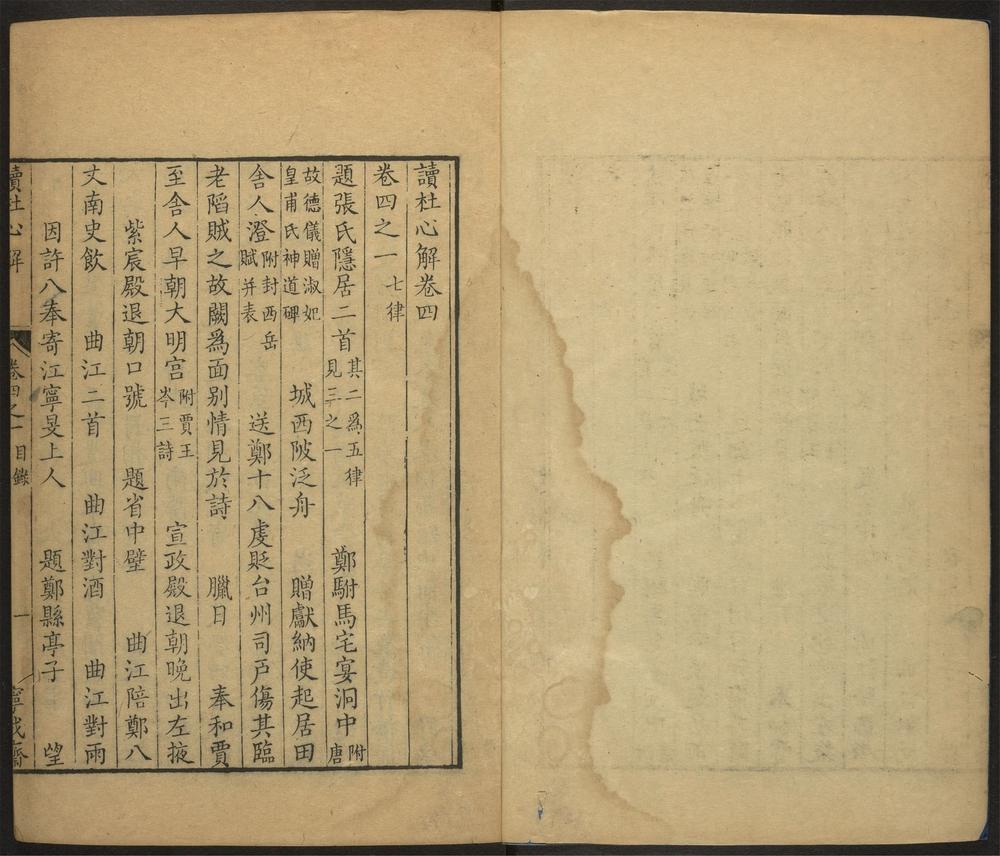 讀杜心解卷四
卷四之一 七律
題張氏隱居二首 其二爲五律見三之一 鄭駙馬宅宴洞中 附唐
故德儀贈淑妃皇甫氏神道碑 城西陂泛舟 贈獻納使起居田
舍人澄 附封西岳賦并表 送鄭十八虔貶台州司戶傷其臨
老陷賊之故闕爲面别情見於詩 臘日 奉和賈
至舍人早朝大明宫 附賈王岑三詩 宣政殿退朝晚出左掖
紫宸殿退朝口號 題省中壁 曲江陪鄭八
丈南史飲 曲江二首 曲江對酒 曲江對雨
因許八奉寄江寧旻上人 題鄭縣亭子 望
讀杜心解 卷四之一 目錄 一 寧我齋